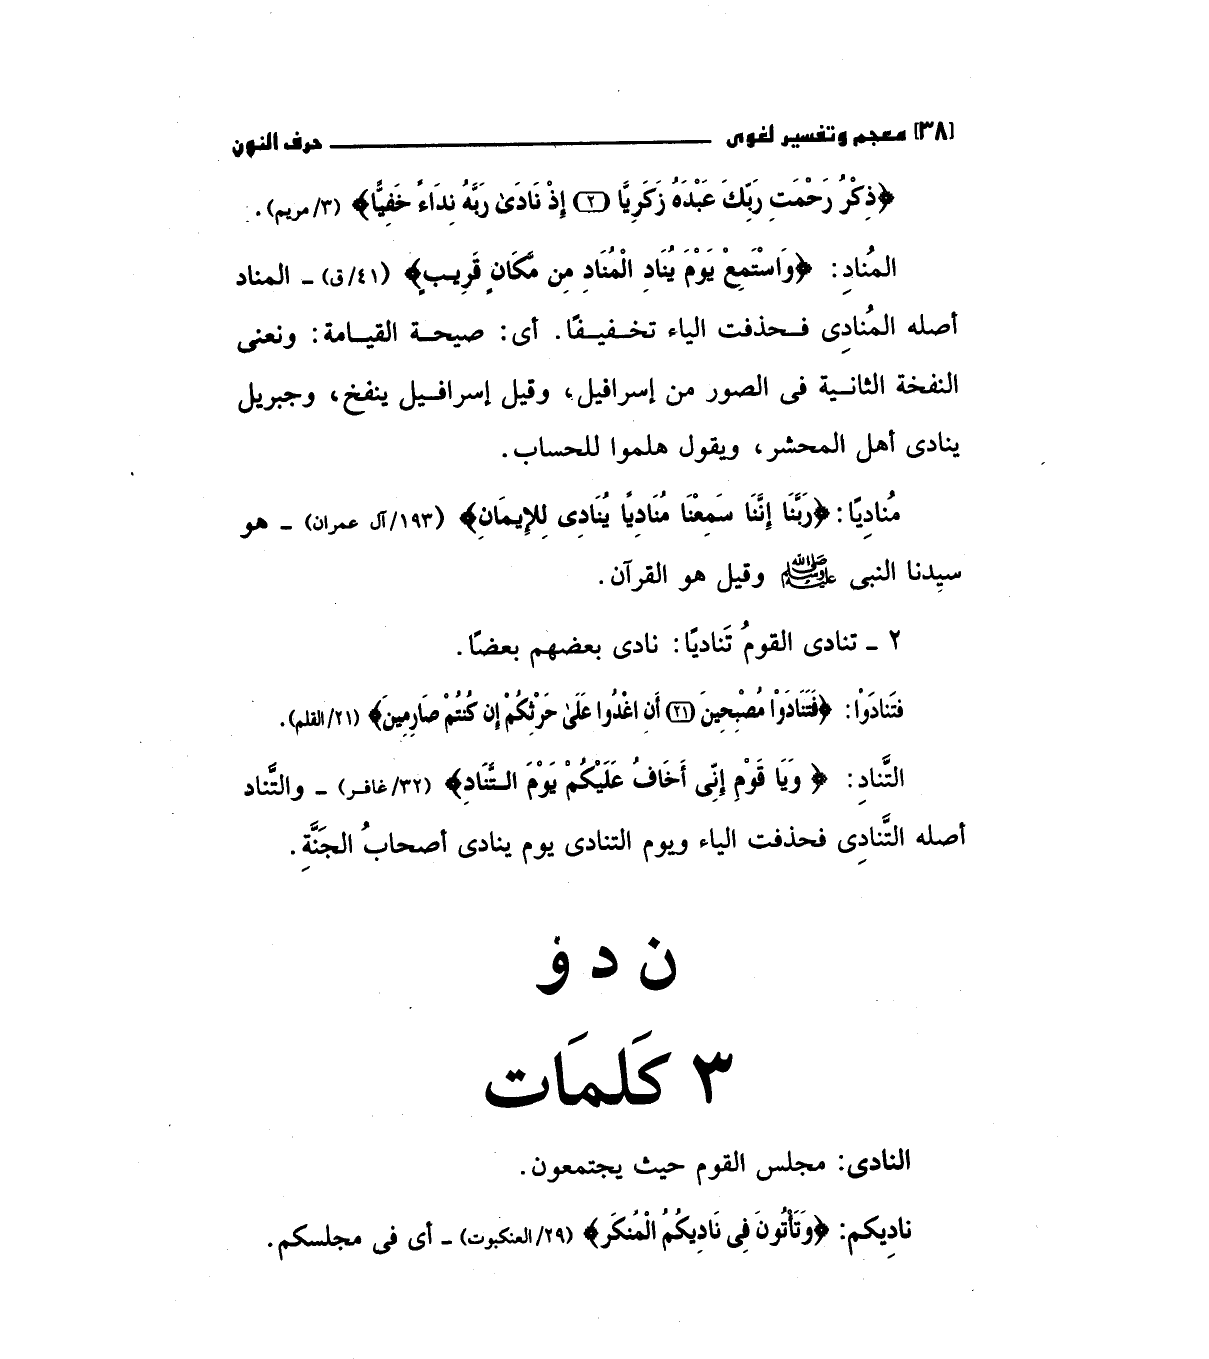 [٣٨] معجم وتفسير لغوى ـــــــــ حرف النون
﴿ذِكْرُ رَحْمَتِ رَبِّكَ عَبْدَهُ زَكَرِيَّا (٢) إِذْ نَادَىٰ رَبَّهُ نِدَاءً خَفِيًّا﴾ (٣/ مريم).
المُنادِ: ﴿وَاسْتَمِعْ يَوْمَ يُنَادِ الْمُنَادِ مِن مَّكَانٍ قَرِيبٍ﴾ (٤١/ ق) ـ المناد
أصله المُنادِى فحذفت الياء تخفيفًا. أى: صيحة القيامة: ونعنى
النفخة الثانية فى الصور من إسرافيل، وقيل إسرافيل ينفخ، وجبريل
ينادى أهل المحشر، ويقول هلموا للحساب.
مُنادِيًا: ﴿رَبَّنَا إِنَّنَا سَمِعْنَا مُنَادِيًا يُنَادِى لِلإِيمَانِ﴾ (١٩٣/ آل عمران) ـ هو
سيِدنا النبى ﷺ وقيل هو القرآن.
٢ ـ تنادى القومُ تَناديًا: نادى بعضهم بعضًا.
فتَنادَوْا: ﴿فَتَنَادَوْا مُصْبِحِينَ (٢١) أَنِ اغْدُوا عَلَىٰ حَرْثِكُمْ إِن كُنتُمْ صَارِمِينَ﴾ (٢١/ القلم).
التَّنادِ: ﴿وَيَا قَوْمِ إِنِّى أَخَافُ عَلَيْكُمْ يَوْمَ التَّنَادِ﴾ (٣٢/ غافر) ـ والتَّناد
أصله التَّنادِى فحذفت الياء ويوم التنادى يوم ينادى أصحابُ الجَنَّةِ.
ن د و
٣ كَلمَات
النادى: مجلس القوم حيث يجتمعون.
نادِيكم: ﴿وَتَأْتُونَ فِى نَادِيكُمُ الْمُنكَرَ﴾ (٢٩/ العنكبوت) ـ أى فى مجلسكم.